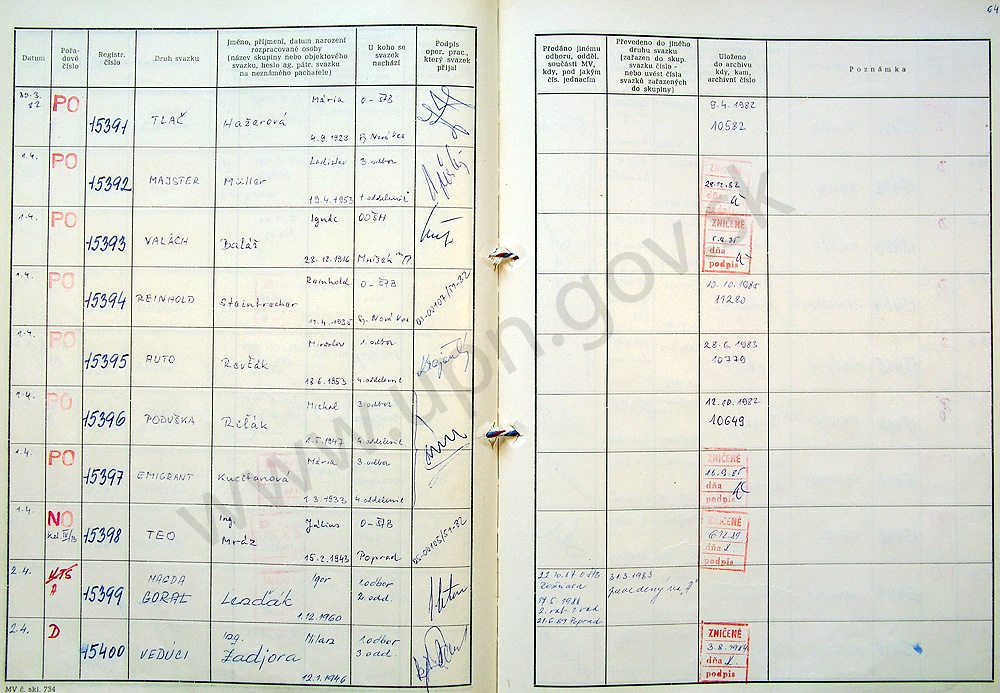 64
Datum
Pořa-
dové
číslo
Registr.
číslo
Druh svazku
Jméno, příjmení, datum narození
rozpracované osoby
(název skupiny nebo objektového
svazku, heslo ag. pátr. svazku
na neznámého pachatele)
U koho se
svazek
nachází
Podpis
oper. prac.,
který svazek
přijal
Předáno jinému
odboru, odděl.
součásti MV,
kdy, pod jakým
čís. jednacím
Převedeno do jiného
druhu svazku
(zařazen do skup.
svazku číslo -
nebo uvést čísla
svazků zařazených
do skupiny)
Uloženo
do archivu
kdy, kam,
archivní číslo
Poznámka
30.3.
82
PO
15391
TLAČ
Mária
Hažarová
4.9.1928
O-ŠTB
Sp. Nová Ves
9.4.1982
10582
1.4.
PO
15392
MAJSTER
Ladislav
Müller
19.4.1953
3. odbor
1. oddelenie
ZNIČENÉ
28.12.82
dňa
podpis
1.4.
PO
15393
VALACH
Ignác
Baláž
28.12.1916
OOŠH
Mníšek n/P
ZNIČENÉ
dňa
podpis
1.4.
PO
15394
REINHOLD
Reinhold
Steinbracher
11.4.1935
O-ŠTB
Sp. Nová Ves
OS-00107/51-82
10.10.1985
11280
1.4.
PO
15395
AUTO
Miroslav
Rovčák
18.6.1953
1. odbor
4. oddelenie
28.6.1983
10779
1.4.
PO
15396
PODUŠKA
Michal
Rišák
1.5.1947
3. odbor
4. oddelenie
12.10.1982
10649
1.4.
PO
15397
EMIGRANT
Mária
Kucitanová
1.3.1932
3. odbor
4. oddelenie
ZNIČENÉ
16.9.85
dňa
podpis
1.4.
NO
15398
TEO
Ing. Július
Mráz
15.2.1943
O-ŠTB
Poprad
OS-00105/51-82
ZNIČENÉ
dňa
podpis
2.4.
KTS
A
15399
MAGDA
GORAL
Igor
Lesďák
1.12.1960
1. odbor
2. odd.
Rožňava
21.6.89 Poprad
31.3.1983
prevedený na "A"
2.4.
D
15400
VEDÚCI
Ing. Milan
Zadjora
12.1.1946
1. odbor
3. odd.
ZNIČENÉ
3.8.1984
dňa
podpis
MV č. skl. 734
www.upn.gov.sk